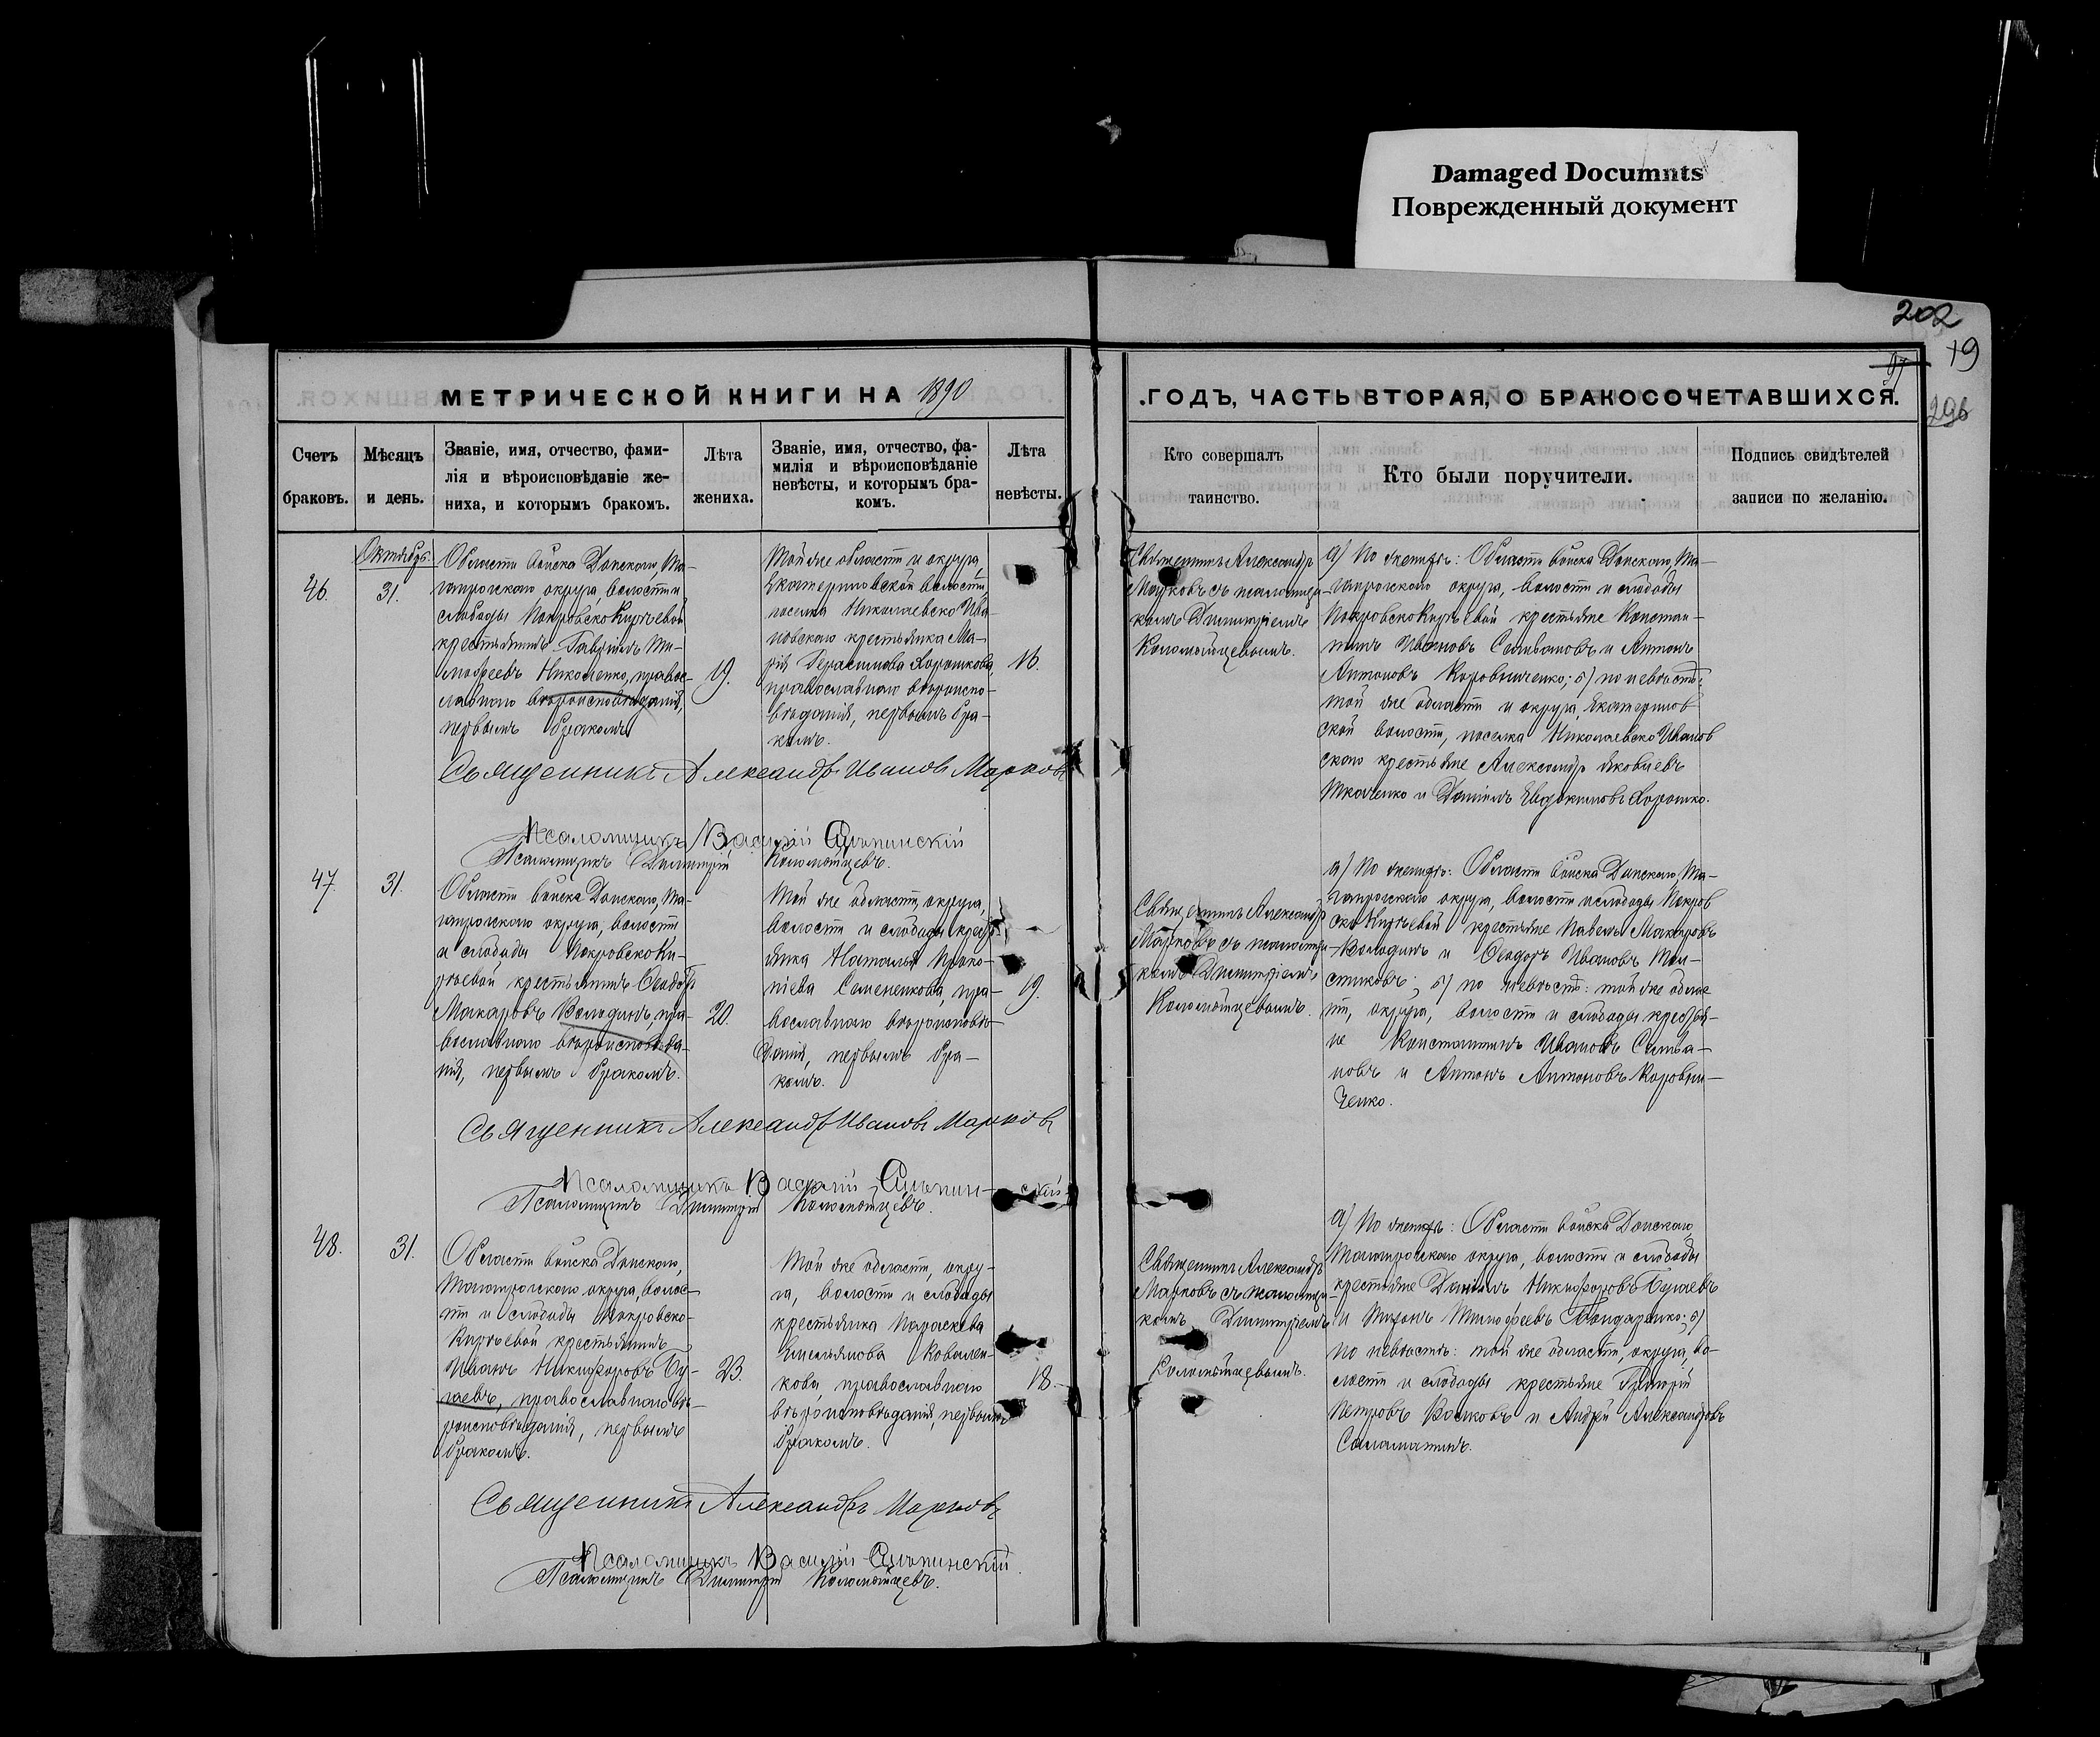 Damaged Documnts
Поврежденный документ
202
19
296
МЕТРИЧЕСКОЙ КНИГИ НА 1890
.ГОДЪ, ЧАСТЬ ВТОРАЯ, О БРАКОСОЧЕТАВШИХСЯ.
Счетъ
браковъ.
Мѣсяцъ
и день.
Званіе, имя, отчество, фами-
лія и вѣроисповѣданіе же-
ниха, и которымъ бракомъ.
Лѣта
жениха.
Званіе, имя, отчество, фа-
милія и вѣроисповѣданіе
невѣсты, и которымъ бра-
комъ.
Лѣта
невѣсты.
Кто совершалъ
таинство.
Кто были поручители.
Подпись свидѣтелей
записи по желанію.
46.
Октябрь.
31.
Области войска Донскаго, Та-
ганрогскаго округа, волости и
слободы Покровско Кирѣевой
крестьянинъ Гавріилъ Ти-
моѳеевъ Николенко, правос-
лавнаго вѣроисповѣданія,
первымъ бракомъ.
19.
Той же области и округа,
Екатериновской волости,
поселка Николаевско Ива-
новскаго крестьянка Ма-
рія Герасимова Хорошкова,
православнаго вѣроиспо-
вѣданія, первымъ бра-
комъ.
16.
Священникъ Александръ
Марковъ съ псаломщи-
комъ Димитріемъ
Коломѣйцевымъ.
а) По женихѣ: Области войска Донскаго, Та-
ганрогскаго округа, волости и слободы
Покровско Кирѣевой крестьяне Констан-
тинъ Ивановъ Сильвановъ и Антонъ
Антоновъ Коровниченко; б) по невѣстѣ:
той же области и округа, Екатеринов
ской волости, поселка Николаевско Иванов
скаго крестьяне Александръ Яковлевъ
Ткаченко и Даніилъ Евдокимовъ Хорошко.
Священникъ Александръ Ивановъ Марковъ
Псаломщикъ Василій
Псаломщикъ Димитрій Коломѣйцевъ.
47.
31.
Области войска Донскаго, Та-
ганрогскаго округа, волости
и слободы Покровско Ки-
рѣевой крестьянинъ Ѳеодоръ
Макаровъ Володинъ, пра-
вославнаго вѣроисповѣда-
нія, первымъ бракомъ.
20.
Той же области, округа,
волости и слободы кресть-
янка Наталья Проко-
піева Семененкова, пра-
вославнаго вѣроисповѣ-
данія, первымъ бра-
комъ.
19.
Священникъ Александръ
Марковъ съ псаломщи-
комъ Димитріемъ
Коломѣйцевымъ.
а) По женихѣ: Области войска Донскаго, Та-
ганрогскаго округа, волости и слободы Покров
ско Кирѣевой крестьяне Павелъ Макаровъ
Володинъ и Ѳеодоръ Ивановъ Тол-
стиковъ; б) по невѣстѣ: той же облас
ти, округа, волости и слободы крестья-
не Константинъ Ивановъ Сильва-
новъ и Антонъ Антоновъ Коровни-
ченко.
Священникъ Александръ Ивановъ Марковъ
Псаломщикъ Василій
Псаломщикъ Димитрій Коломѣйцевъ.
48.
31.
Области войска Донскаго,
Таганрогскаго округа, волос-
ти и слободы Покровско-
Кирѣевой крестьянинъ
Иванъ Никифоровъ Бу-
гаевъ, православнаго вѣ-
роисповѣданія, первымъ
бракомъ.
23.
Той же области, окру-
га, волости и слободы
крестьянка Параскева
Емельянова Ковален-
кова, православнаго
вѣроисповѣданія, первымъ
бракомъ.
18.
Священникъ Александръ
Марковъ съ псаломщи-
комъ Димитріемъ
Коломѣйцевымъ.
а) По женихѣ: Области войска Донскаго,
Таганрогскаго округа, волости и слободы
крестьяне Даніилъ Никифоровъ Бугаевъ
и Тихонъ Тимоѳеевъ Бондаренко; б)
по невѣстѣ: той же области, округа, во-
лости и слободы крестьяне Григорій
Петровъ Волковъ и Андрей Александровъ
Саламатинъ.
Священникъ Александръ Марковъ
Псаломщикъ Василій
Псаломщикъ Димитрій Коломѣйцевъ.